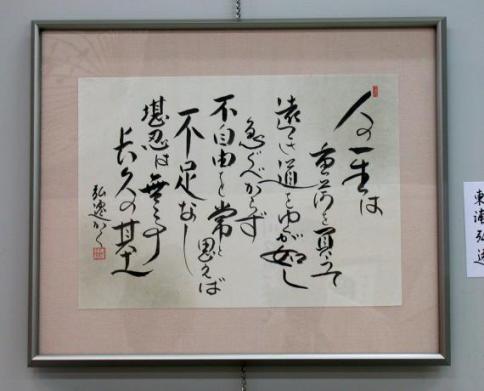 人の一生は
重荷を負うて
遠き道をゆくが如し
急ぐべからず
不自由を常と思えば
不足なし
堪忍は無事
長久の基